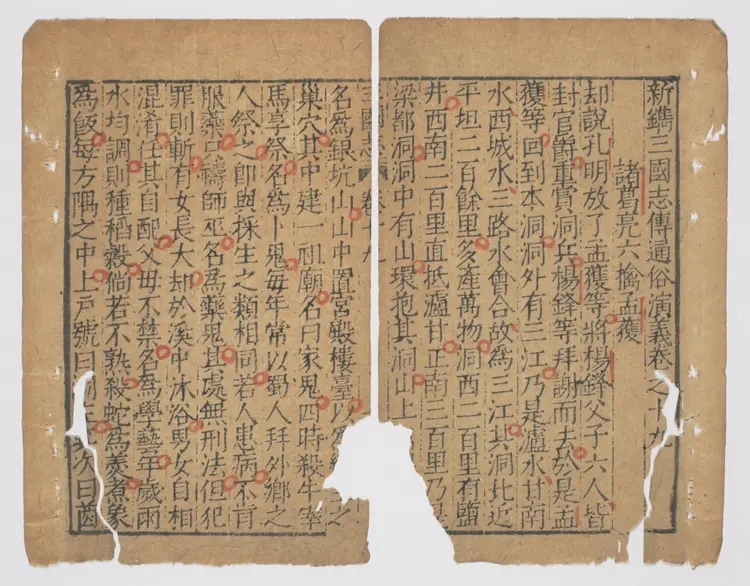 新鐫三國志傳通俗演義卷之十九
諸葛亮六擒孟獲
却說孔明放了孟獲等將楊鋒父子六人皆
封官爵重賞洞兵楊鋒等拜謝而去於是孟
獲等回到本洞洞外有三江乃是瀘水甘南
水西城水三路水會合故為三江其洞北近
平坦二百餘里多產萬物洞西二百里有鹽
井西南二百里直抵瀘甘正南三百里乃是
梁都洞洞中有山環抱其洞山上
三國志 卷十九
名為銀坑山山中置宮殿樓臺以為之
巢穴其中建一祖廟名曰家鬼四時殺牛宰
馬享祭名為卜鬼每年常以蜀人拜外鄉之
人祭之即與採生之類相同若人患病不肯
服藥只禱師巫名為藥鬼其處無刑法但犯
罪則斬有女長大却於溪中沐浴男女自相
混淆任其自配父母不禁名為學藝年歲雨
水均調則種稻穀倘若不熟殺蛇為羹煮象
為飯每方隅之中上戶號曰洞主其次曰酋